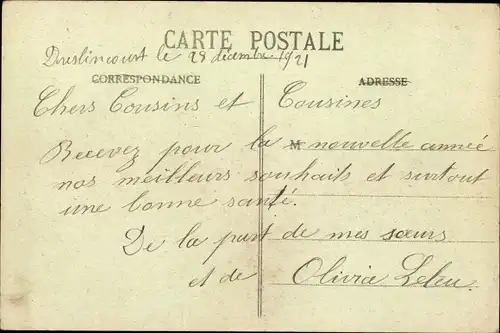 CARTE POSTALE
Dreslincourt le 28 décembre 1921
CORRESPONDANCE
ADRESSE
Chers Cousins et Cousines
Recevez pour la M nouvelle année
nos meilleurs souhaits et surtout
une bonne santé.
De la part de mes sœurs
et de Olivia Leleu.